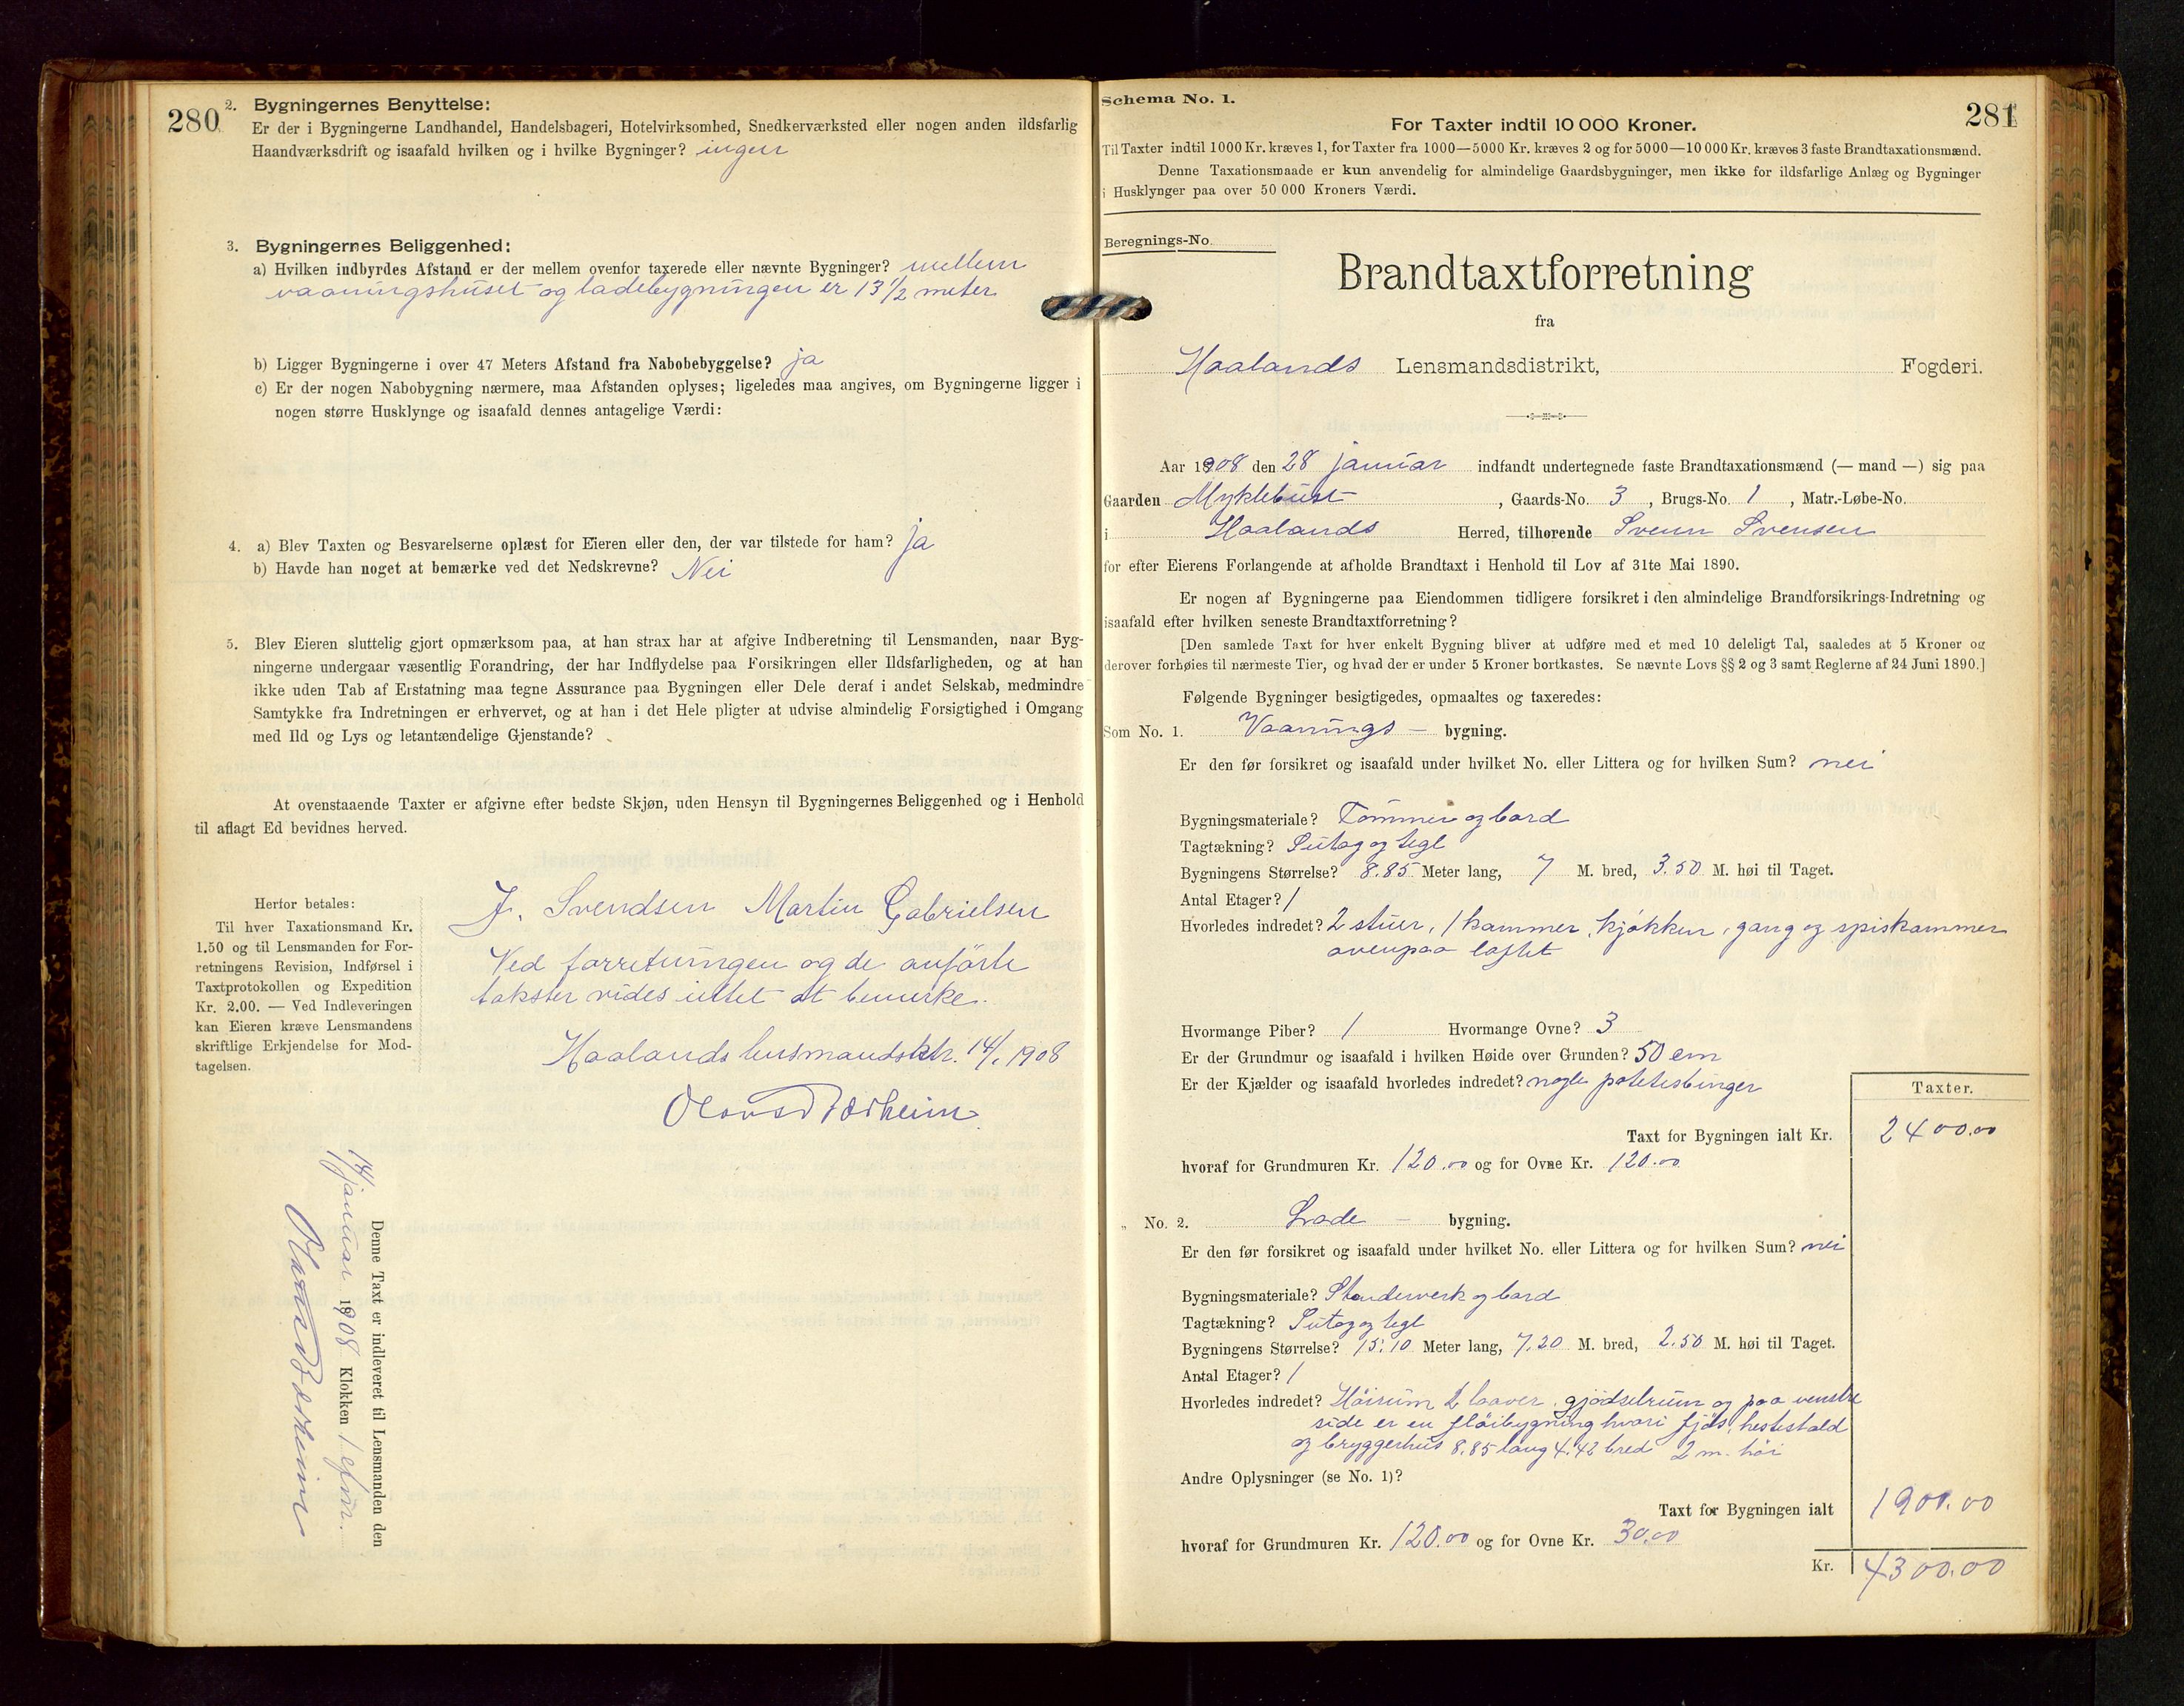 280
2. Bygningernes Benyttelse:
Er der i Bygningerne Landhandel, Handelsbageri, Hotelvirksomhed, Snedkerværksted eller nogen anden ildsfarlig
Haandværksdrift og isaafald hvilken og i hvilke Bygninger? ingen
3. Bygningernes Beliggenhed:
a) Hvilken indbyrdes Afstand er der mellem ovenfor taxerede eller nævnte Bygninger? mellem
vaaningshuset og ladebygningen er 13 1/2 meter
b) Ligger Bygningerne i over 47 Meters Afstand fra Nabobebyggelse? ja
c) Er der nogen Nabobygning nærmere, maa Afstanden oplyses; ligeledes maa angives, om Bygningerne ligger i
nogen større Husklynge og isaafald dennes antagelige Værdi:
4. a) Blev Taxten og Besvarelserne oplæst for Eieren eller den, der var tilstede for ham? ja
b) Havde han noget at bemærke ved det Nedskrevne? Nei
5. Blev Eieren sluttelig gjort opmærksom paa, at han strax har at afgive Indberetning til Lensmanden, naar Byg-
ningerne undergaar væsentlig Forandring, der har Indflydelse paa Forsikringen eller Ildsfarligheden, og at han
ikke uden Tab af Erstatning maa tegne Assurance paa Bygningen eller Dele deraf i andet Selskab, medmindre
Samtykke fra Indretningen er erhvervet, og at han i det Hele pligter at udvise almindelig Forsigtighed i Omgang
med Ild og Lys og letantændelige Gjenstande?
At ovenstaaende Taxter er afgivne efter bedste Skjøn, uden Hensyn til Bygningernes Beliggenhed og i Henhold
til aflagt Ed bevidnes herved.
Herfor betales:
Til hver Taxationsmand Kr.
1.50 og til Lensmanden for For-
retningens Revision, Indførsel i
Taxtprotokollen og Expedition
Kr. 2.00. — Ved Indleveringen
kan Eieren kræve Lensmandens
skriftlige Erkjendelse for Mod-
tagelsen.
J. Svendsen Martin Gabrielsen
Ved forretningen og de anförte
takster vides intet at bemerke.
Haalands lensmandsktr. 14/1 1908
Denne Taxt er indleveret til Lensmanden den
14 januar 1908 Klokken 1 efm.
Schema No. 1.
281
For Taxter indtil 10 000 Kroner.
Til Taxter indtil 1000 Kr. kræves 1, for Taxter fra 1000—5000 Kr. kræves 2 og for 5000—10 000 Kr. kræves 3 faste Brandtaxationsmænd.
Denne Taxationsmaade er kun anvendelig for almindelige Gaardsbygninger, men ikke for ildsfarlige Anlæg og Bygninger
i Husklynger paa over 50 000 Kroners Værdi.
Beregnings-No.
Brandtaxtforretning
fra
Haalands Lensmandsdistrikt, Fogderi.
Aar 1908 den 28 januar indfandt undertegnede faste Brandtaxationsmænd (— mand —) sig paa
Gaarden Myklebust, Gaards-No. 3, Brugs-No. 1, Matr.-Løbe-No.
i Haalands Herred, tilhørende Svenn Svensen
for efter Eierens Forlangende at afholde Brandtaxt i Henhold til Lov af 31te Mai 1890.
Er nogen af Bygningerne paa Eiendommen tidligere forsikret i den almindelige Brandforsikrings-Indretning og
isaafald efter hvilken seneste Brandtaxtforretning?
[Den samlede Taxt for hver enkelt Bygning bliver at udføre med et med 10 deleligt Tal, saaledes at 5 Kroner og
derover forhøies til nærmeste Tier, og hvad der er under 5 Kroner bortkastes. Se nævnte Lovs §§ 2 og 3 samt Reglerne af 24 Juni 1890.]
Følgende Bygninger besigtigedes, opmaaltes og taxeredes:
Som No. 1. Vaanings — bygning.
Er den før forsikret og isaafald under hvilket No. eller Littera og for hvilken Sum? nei
Bygningsmateriale? Tömmer og bord
Tagtækning? Sutag og tegl
Bygningens Størrelse? 8.85 Meter lang, 7 M. bred, 3.50 M. høi til Taget.
Antal Etager? 1
Hvorledes indredet? 2 stuer, 1 kammer, kjøkken, gang og spiskammer
ovenpaa loftet
Hvormange Piber? 1 Hvormange Ovne? 3
Er der Grundmur og isaafald i hvilken Høide over Grunden? 50 cm
Er der Kjælder og isaafald hvorledes indredet? nogle potetesbinger
Taxter.
Taxt for Bygningen ialt Kr. 2400.00
hvoraf for Grundmuren Kr. 120.00 og for Ovne Kr. 120.00
„ No. 2. Lade — bygning.
Er den før forsikret og isaafald under hvilket No. eller Littera og for hvilken Sum? nei
Bygningsmateriale? Standerverk og bord
Tagtækning? Sutag og tegl
Bygningens Størrelse? 15.10 Meter lang, 7.20 M. bred, 2.50 M. høi til Taget.
Antal Etager? 1
Hvorledes indredet? Höirum 2 laaver, gjödselrum og paa venstre
side er en flöibygning hvori fjös, hestestald
og bryggerhus 8.85 lang 4.42 bred 2 m. höi
Andre Oplysninger (se No. 1)?
Taxt for Bygningen ialt 1900.00
hvoraf for Grundmuren Kr. 120.00 og for Ovne Kr. 30.00
Kr. 4300.00